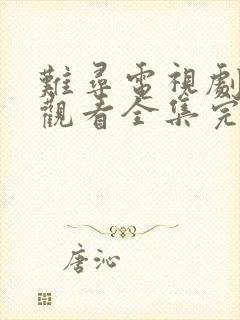 難尋電視劇
觀看全集完
唐沁